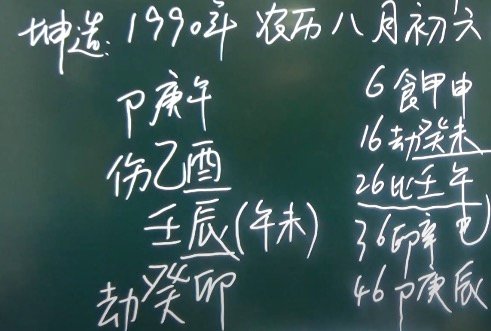 坤造：1990年 农历八月初六
卩庚午
伤乙酉
壬辰(午未)
劫癸卯
6食甲申
16劫癸未
26比壬午
36印辛巳
46卩庚辰